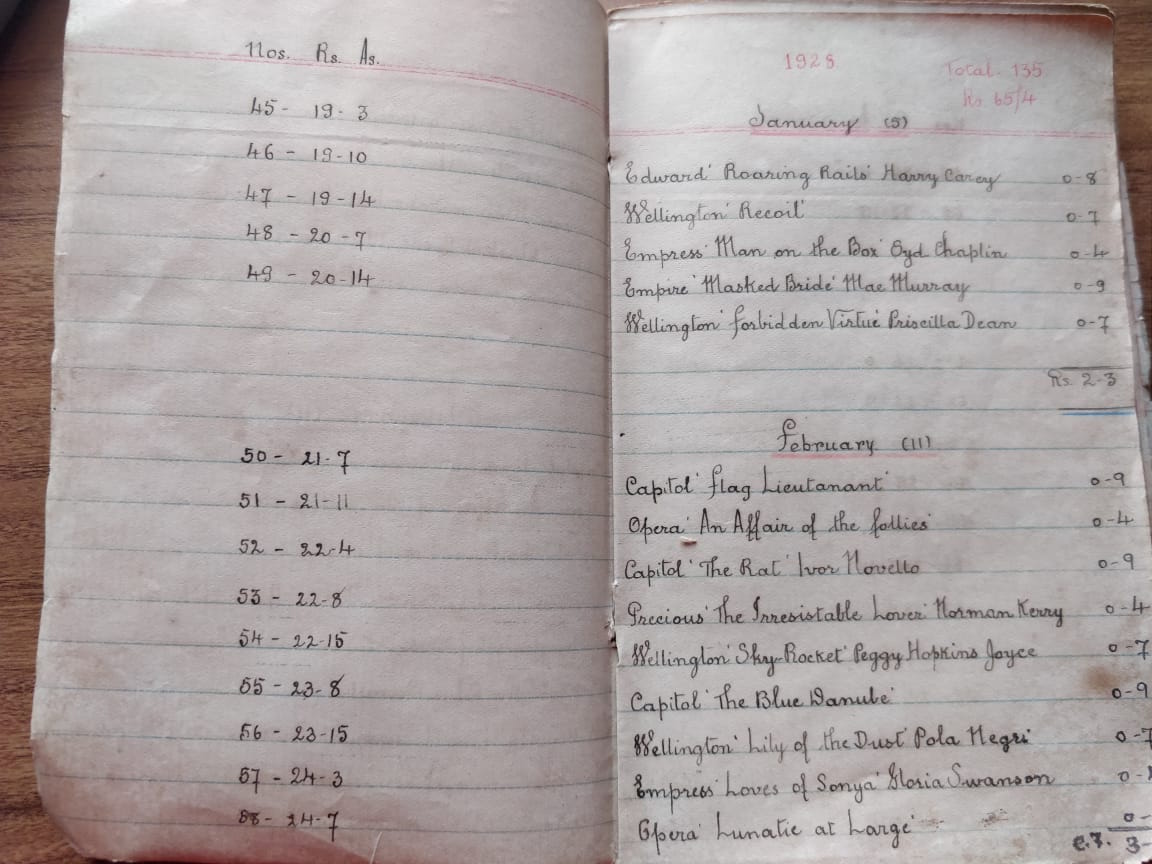 Nos. Rs. As.
45 - 19 - 3
46 - 19-10
47 - 19-14
48 - 20 - 7
49 - 20-14
50 - 21-7
51 - 21-11
52 - 22-4
53 - 22-8
54 - 22-15
55 - 23-8
56 - 23-15
57 - 24-3
58 - 24-7
1928
Total. 135
Rs 65/4
January (5)
Edward 'Roaring Rails' Harry Carey 0-8
Wellington 'Recoil' 0-7
Empress 'Man on the Box' Syd Chaplin 0-4
Empire 'Masked Bride' Mae Murray 0-9
Wellington 'Forbidden Virtue' Priscilla Dean 0-7
Rs. 2-3
February (11)
Capitol 'Flag Lieutanant' 0-9
Opera 'An Affair of the follies' 0-4
Capitol 'The Rat' Ivor Novello 0-9
Precious 'The Irresistable Lover' Norman Kerry 0-4
Wellington 'Sky-Rocket' Peggy Hopkins Joyce 0-7
Capitol 'The Blue Danube' 0-9
Wellington 'Lily of the Dust' Pola Negri 0-7
Empress 'Loves of Sonya' Gloria Swanson 0-
Opera 'Lunatic at Large' 0-
c.f. 3-